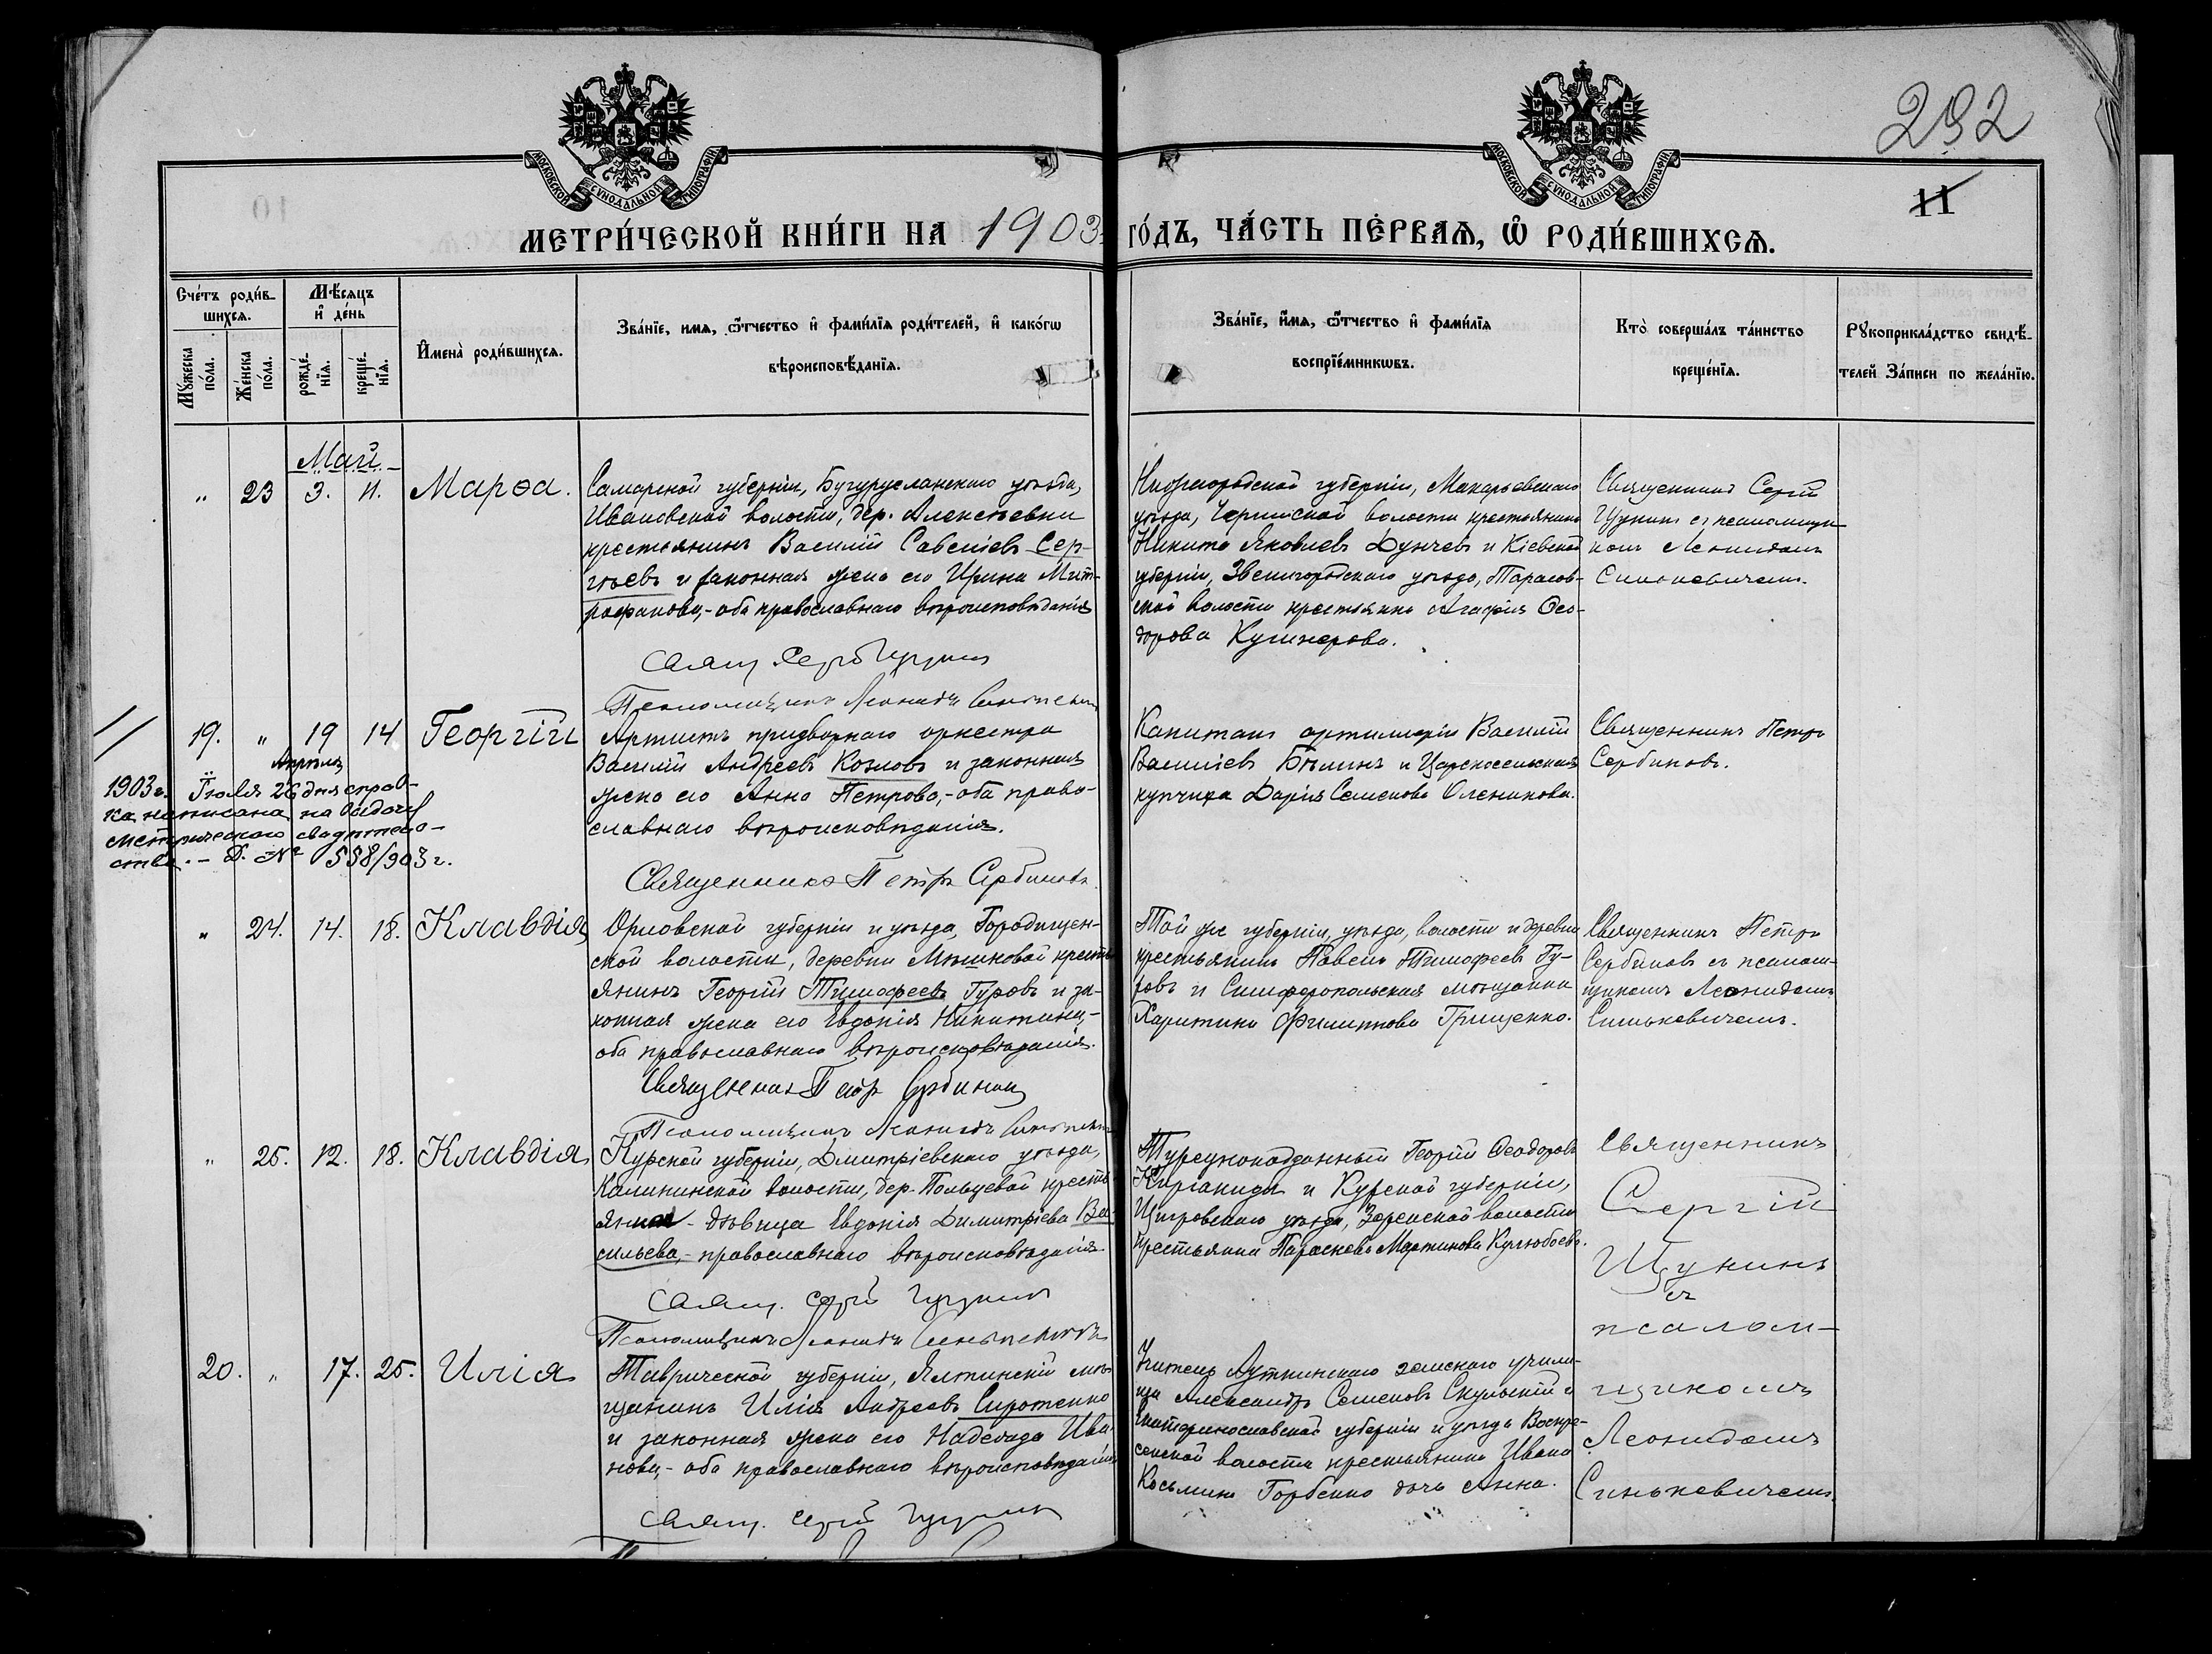 292
11
МОСКОВСКОЙ СѴНОДАЛЬНОЙ ТИПОГРАФІИ
МОСКОВСКОЙ СѴНОДАЛЬНОЙ ТИПОГРАФІИ
МЕТРИ́ЧЕСКОЙ КНИ́ГИ НА 1903 ГО́ДЪ, ЧА́СТЬ ПЕ́РВАѦ, Ѡ РОДИ́ВШИХСѦ.
Сче́тъ роди́в-
шихсѧ.
Мѣ́сяцъ
и де́нь
Мꙋ́жеска по́ла.
Же́нска по́ла.
рожде́-
нїѧ.
креще́-
нїѧ.
Имена̀ роди́вшихсѧ.
Зва́нїе, имѧ, ѻ́тчество и фами́лїѧ роди́телей, и како́гѡ
вѣроисповѣ́данїѧ.
Зва́нїе, и́мѧ, ѻ́тчество и фами́лїѧ
воспрїе́мникѡвъ.
Кто̀ соверша́лъ та́инство
креще́нїѧ.
Рꙋкоприкла́дство свидѣ́-
телей За́писи по жела́нїю.
Май
„ 23 3. 11. Марѳа.
Самарской губерніи, Бугурусланскаго уѣзда,
Ивановской волости, дер. Алексѣевки
крестьянинъ Василій Савеліевъ Сер-
гѣевъ и законная жена его Ирина Мит-
рофанова,- оба православнаго вѣроисповѣданія
Свящ. Сергій Щукинъ
Псаломщикъ Леонидъ Синькевичъ
Нижегородской губерніи, Макарьевскаго
уѣзда, волости крестьянинъ
Никита Яковлевъ Дунчевъ и Кіевской
губерніи, Звенигородскаго уѣзда, Тарасов-
ской волости крестьянка Агафія Ѳео-
дорова
Священникъ Сергій
Щукинъ съ псаломщи-
комъ Леонидомъ
Синькевичемъ.
19. „ 19 14 Георгій
Апрѣля
Артистъ придворнаго оркестра
Василій Андреевъ Козловъ и законная
жена его Анна Петрова,- оба право-
славнаго вѣроисповѣданія.
Священникъ Петръ Сербиновъ
Капитанъ артиллеріи Василій
Василіевъ Бѣлинъ и Царскосельская
купчиха Дарія Семенова Оленикова.
Священникъ Петръ
Сербиновъ.
1903 г. Іюля 26 дня справ-
ка написана на выдачу
метрическаго свидѣтель-
ства. - Д. № 558/903 г.
„ 24. 14. 18. Клавдія
Орловской губерніи и уѣзда, Городищен-
ской волости, деревни Мѣшковой кресть-
янинъ Георгій Тимофеевъ Гуровъ и за-
конная жена его Евдокія Никитина,-
оба православнаго вѣроисповѣданія.
Священникъ Петръ Сербиновъ
Псаломщикъ Леонидъ Синькевичъ
Той же губерніи, уѣзда, волости и деревни
крестьянинъ Павелъ Тимофеевъ Гу-
ровъ и Симферопольская мѣщанка
Харитина Филиппова Грищенко.
Священникъ Петръ
Сербиновъ съ псалом-
щикомъ Леонидомъ
Синькевичемъ.
„ 25. 12. 18. Клавдія
Курской губерніи, Дмитріевскаго уѣзда,
Калининской волости, дер. Польцевой кресть-
янка - дѣвица Евдокія Димитріева Ва-
сильева,- православнаго вѣроисповѣданія
Свящ. Сергій Щукинъ
Псаломщикъ Леонидъ Синькевичъ
Турецкоподданный Георгій Ѳеодоровъ
и Курской губерніи,
Щигровскаго уѣзда, волости
крестьянка Параскева Мартинова
Священникъ
Сергій
Щукинъ
съ
псалом-
щикомъ
Леонидомъ
Синькевичемъ.
20. „ 17. 25. Илія
Таврической губерніи, Ялтинскій мѣ-
щанинъ Илія Андреевъ Сиротенко
и законная жена его Надежда Ива-
нова,- оба православнаго вѣроисповѣданія
Свящ. Сергій Щукинъ
Учитель Ауткинскаго земскаго учили-
ща Александръ Семеновъ Скульскій и
Екатеринославской губерніи и уѣзда Воскре-
сенской волости крестьянина Ивана
Косьмина Горбенко дочь Анна.